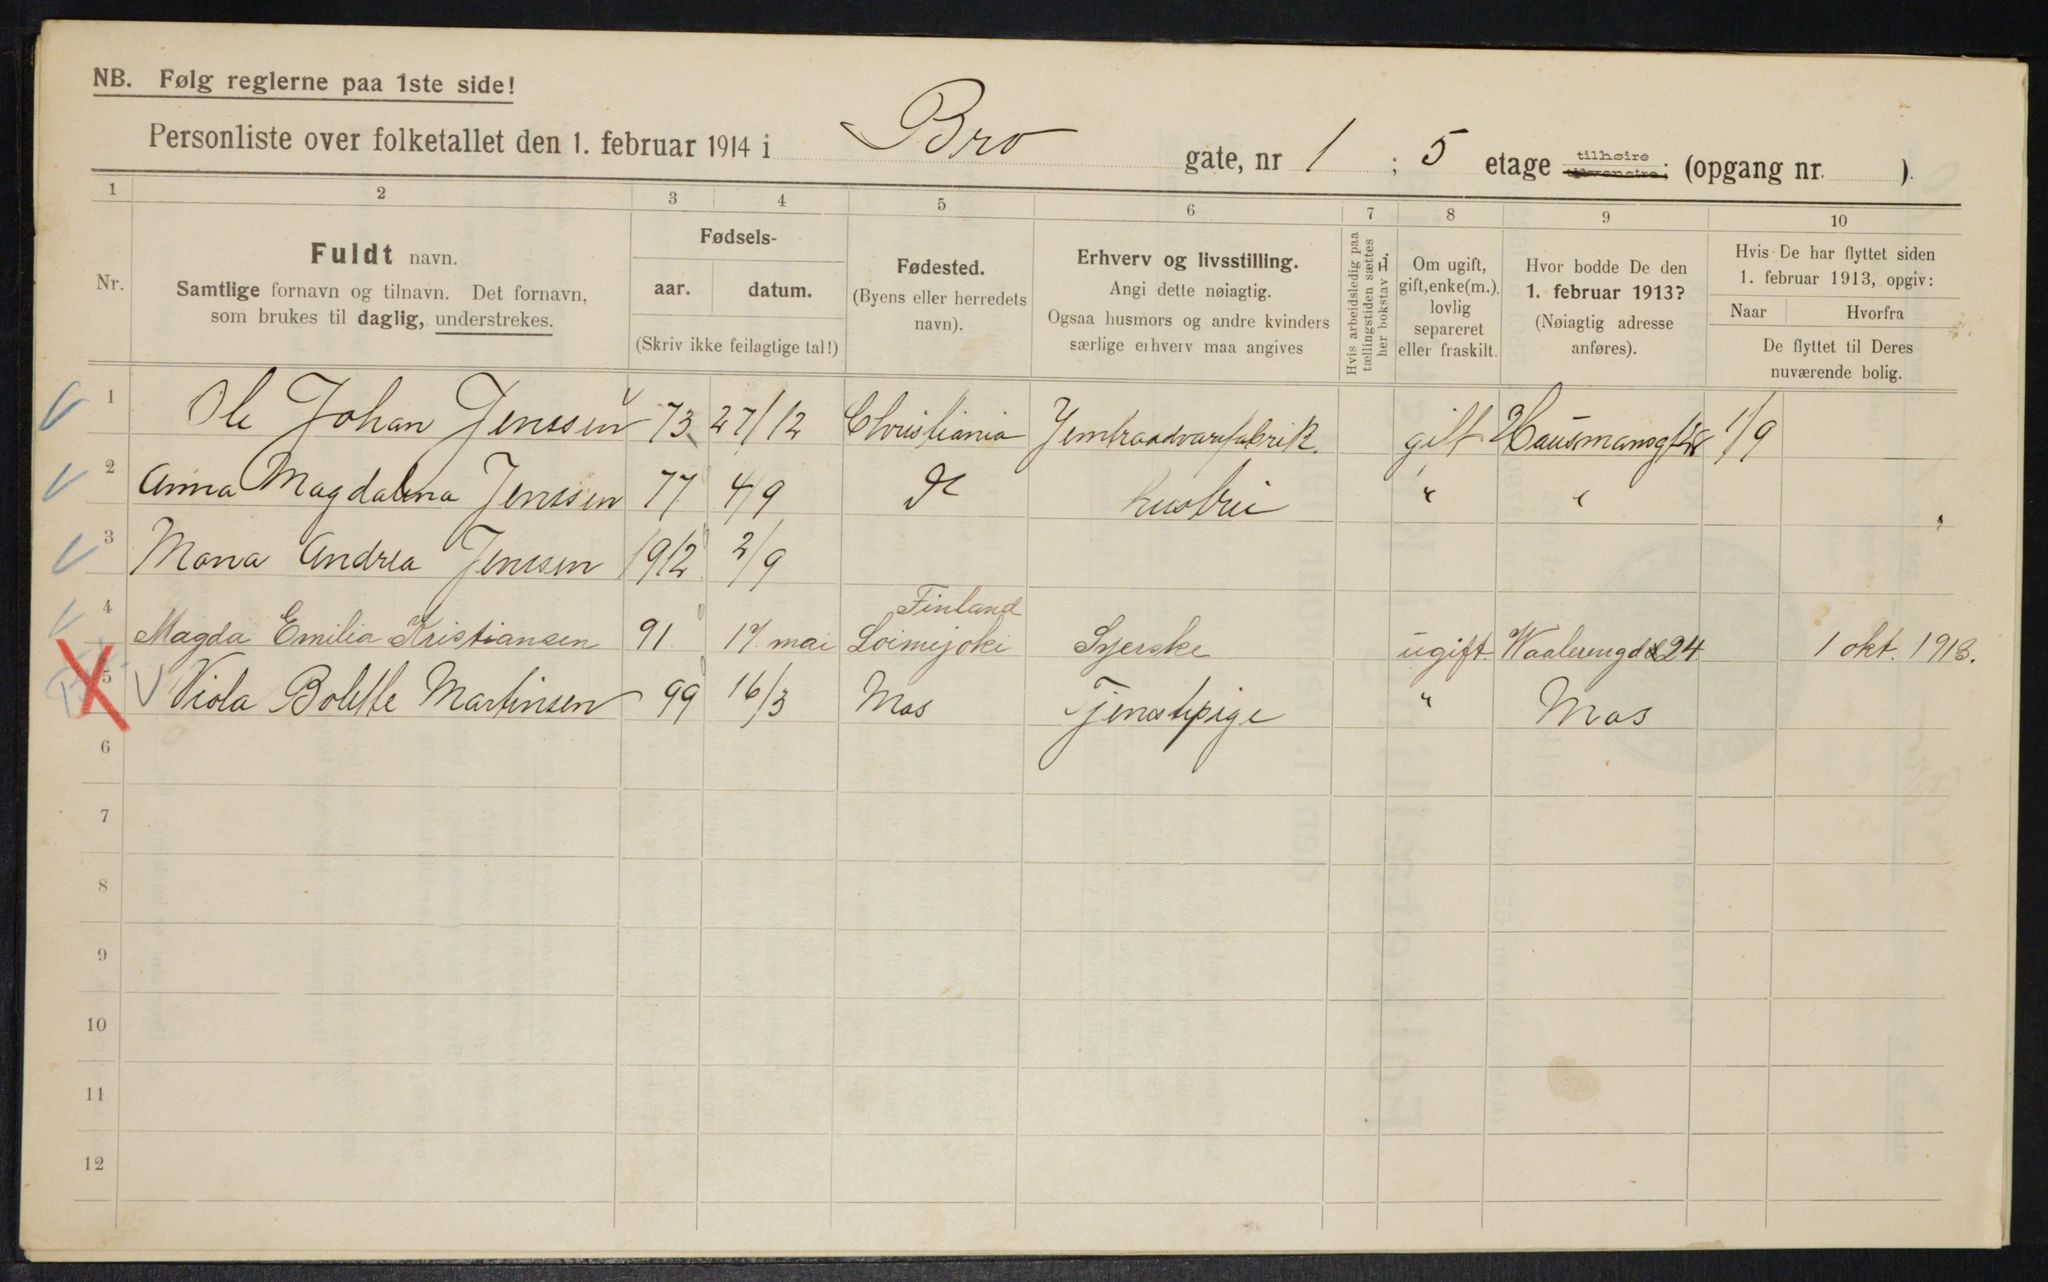 NB. Følg reglerne paa 1ste side!
Personliste over folketallet den 1. februar 1914 i Bro gate, nr 1 ; 5 etage tilhøire tilvenstre; (opgang nr. ).
1 2 3 4 5 6 7 8 9 10
Nr.
Fuldt navn.
Samtlige fornavn og tilnavn. Det fornavn,
som brukes til daglig, understrekes.
Fødsels-
aar. datum.
(Skriv ikke feilagtige tal!)
Fødested.
(Byens eller herredets
navn).
Erhverv og livsstilling.
Angi dette nøiagtig.
Ogsaa husmors og andre kvinders
særlige erhverv maa angives
Hvis arbeidsledig paa
tællingstiden sættes
her bokstav H.
Om ugift,
gift, enke(m.),
lovlig
separeret
eller fraskilt.
Hvor bodde De den
1. februar 1913?
(Nøiagtig adresse
anføres).
Hvis De har flyttet siden
1. februar 1913, opgiv:
Naar Hvorfra
De flyttet til Deres
nuværende bolig.
1 Ole Johan Jenssen 73 27/12 Christiania Jerntraadvarefabrik. gift Hausmansgt 28 1/9
2 Anna Magdalena Jenssen 77 4/9 do husfrue " "
3 Mona Andrea Jenssen 1912 2/9
Finland
4 Magda Emilia Kristiansen 91. 17. mai Loimijoki Syerske ugift. Waalerengd 24 1 okt. 1913.
5 Viola Bolette Martinsen 99 16/3 Mos Tjenestepige " Mos
6
7
8
9
10
11
12